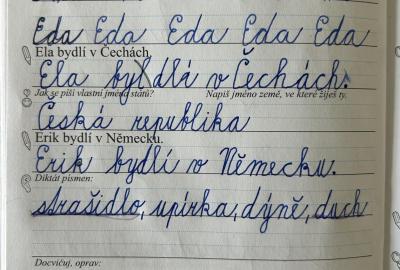 Eda Eda Eda Eda Eda
Ela bydlí v Čechách.
Ela bydlí v Čechách.
Jak se píší vlastní jména států? Napiš jméno země, ve které žiješ ty.
Česká republika
Erik bydlí v Německu.
Erik bydlí v Německu.
Diktát písmen:
strašidlo, upírka, dýně, duch
Docvičuj, oprav: